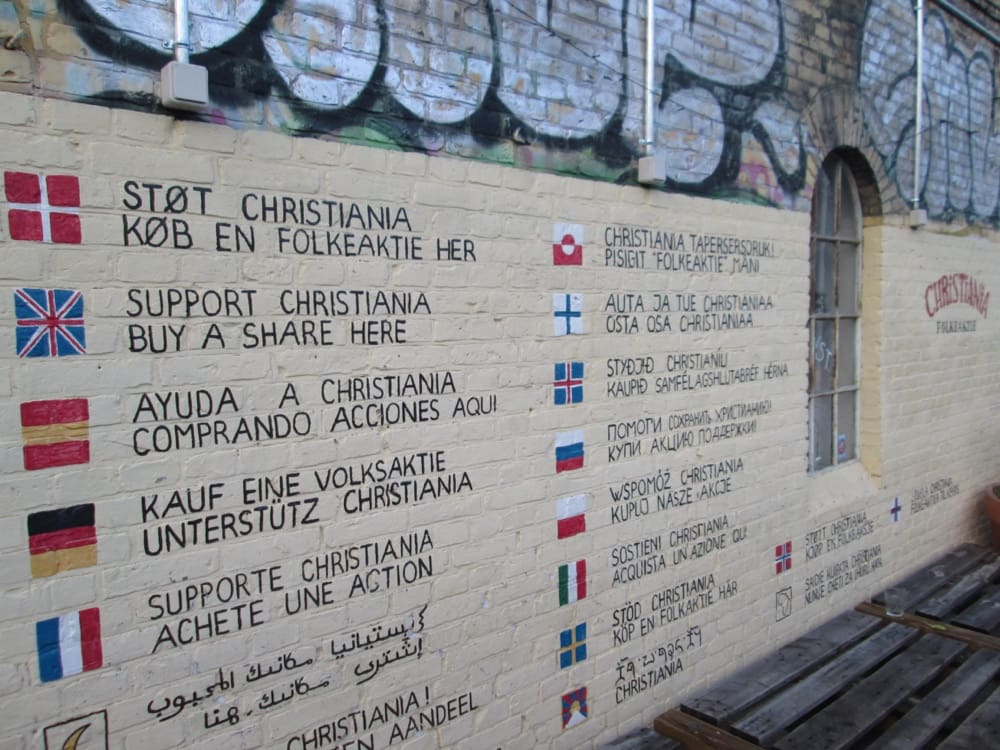 STØT CHRISTIANIA
KØB EN FOLKEAKTIE HER
SUPPORT CHRISTIANIA
BUY A SHARE HERE
AYUDA A CHRISTIANIA
COMPRANDO ACCIONES AQUI
KAUF EINE VOLKSAKTIE
UNTERSTÜTZ CHRISTIANIA
SUPPORTE CHRISTIANIA
ACHETE UNE ACTION
مكانك
إشتري مكانك هنا
CHRISTIANIA!
EEN AANDEEL
CHRISTIANIA TAPERSERSORUK!
PISIGIT "FOLKEAKTIE" MANI
AUTA JA TUE CHRISTIANIAA
OSTA OSA CHRISTIANIAA
STYÐJIÐ CHRISTIANIU
KAUPIÐ SAMFÉLAGSHLUTABRÉF HÉRNA
ПОМОГИ СОХРАНИТЬ ХРИСТИАНИЮ!
КУПИ АКЦИЮ ПОДДЕРЖКИ!
WSPOMÓŻ CHRISTIANIA
KUPUJ NASZE AKCJE
SOSTIENI CHRISTIANIA
ACQUISTA UN'AZIONE QUI
STÖD CHRISTIANIA
KÖP EN FOLKAKTIE HÄR
CHRISTIANIA
STØTT CHRISTIANIA
KJØP EN FOLKEAKSJE
SAIDIE KUIPATA CHRISTIANIA
CHRISTIANIA
FOLKEAKTIE